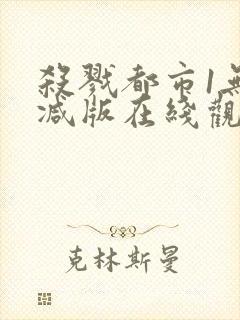 殺戮都市1無
減版在綫觀
克林斯曼